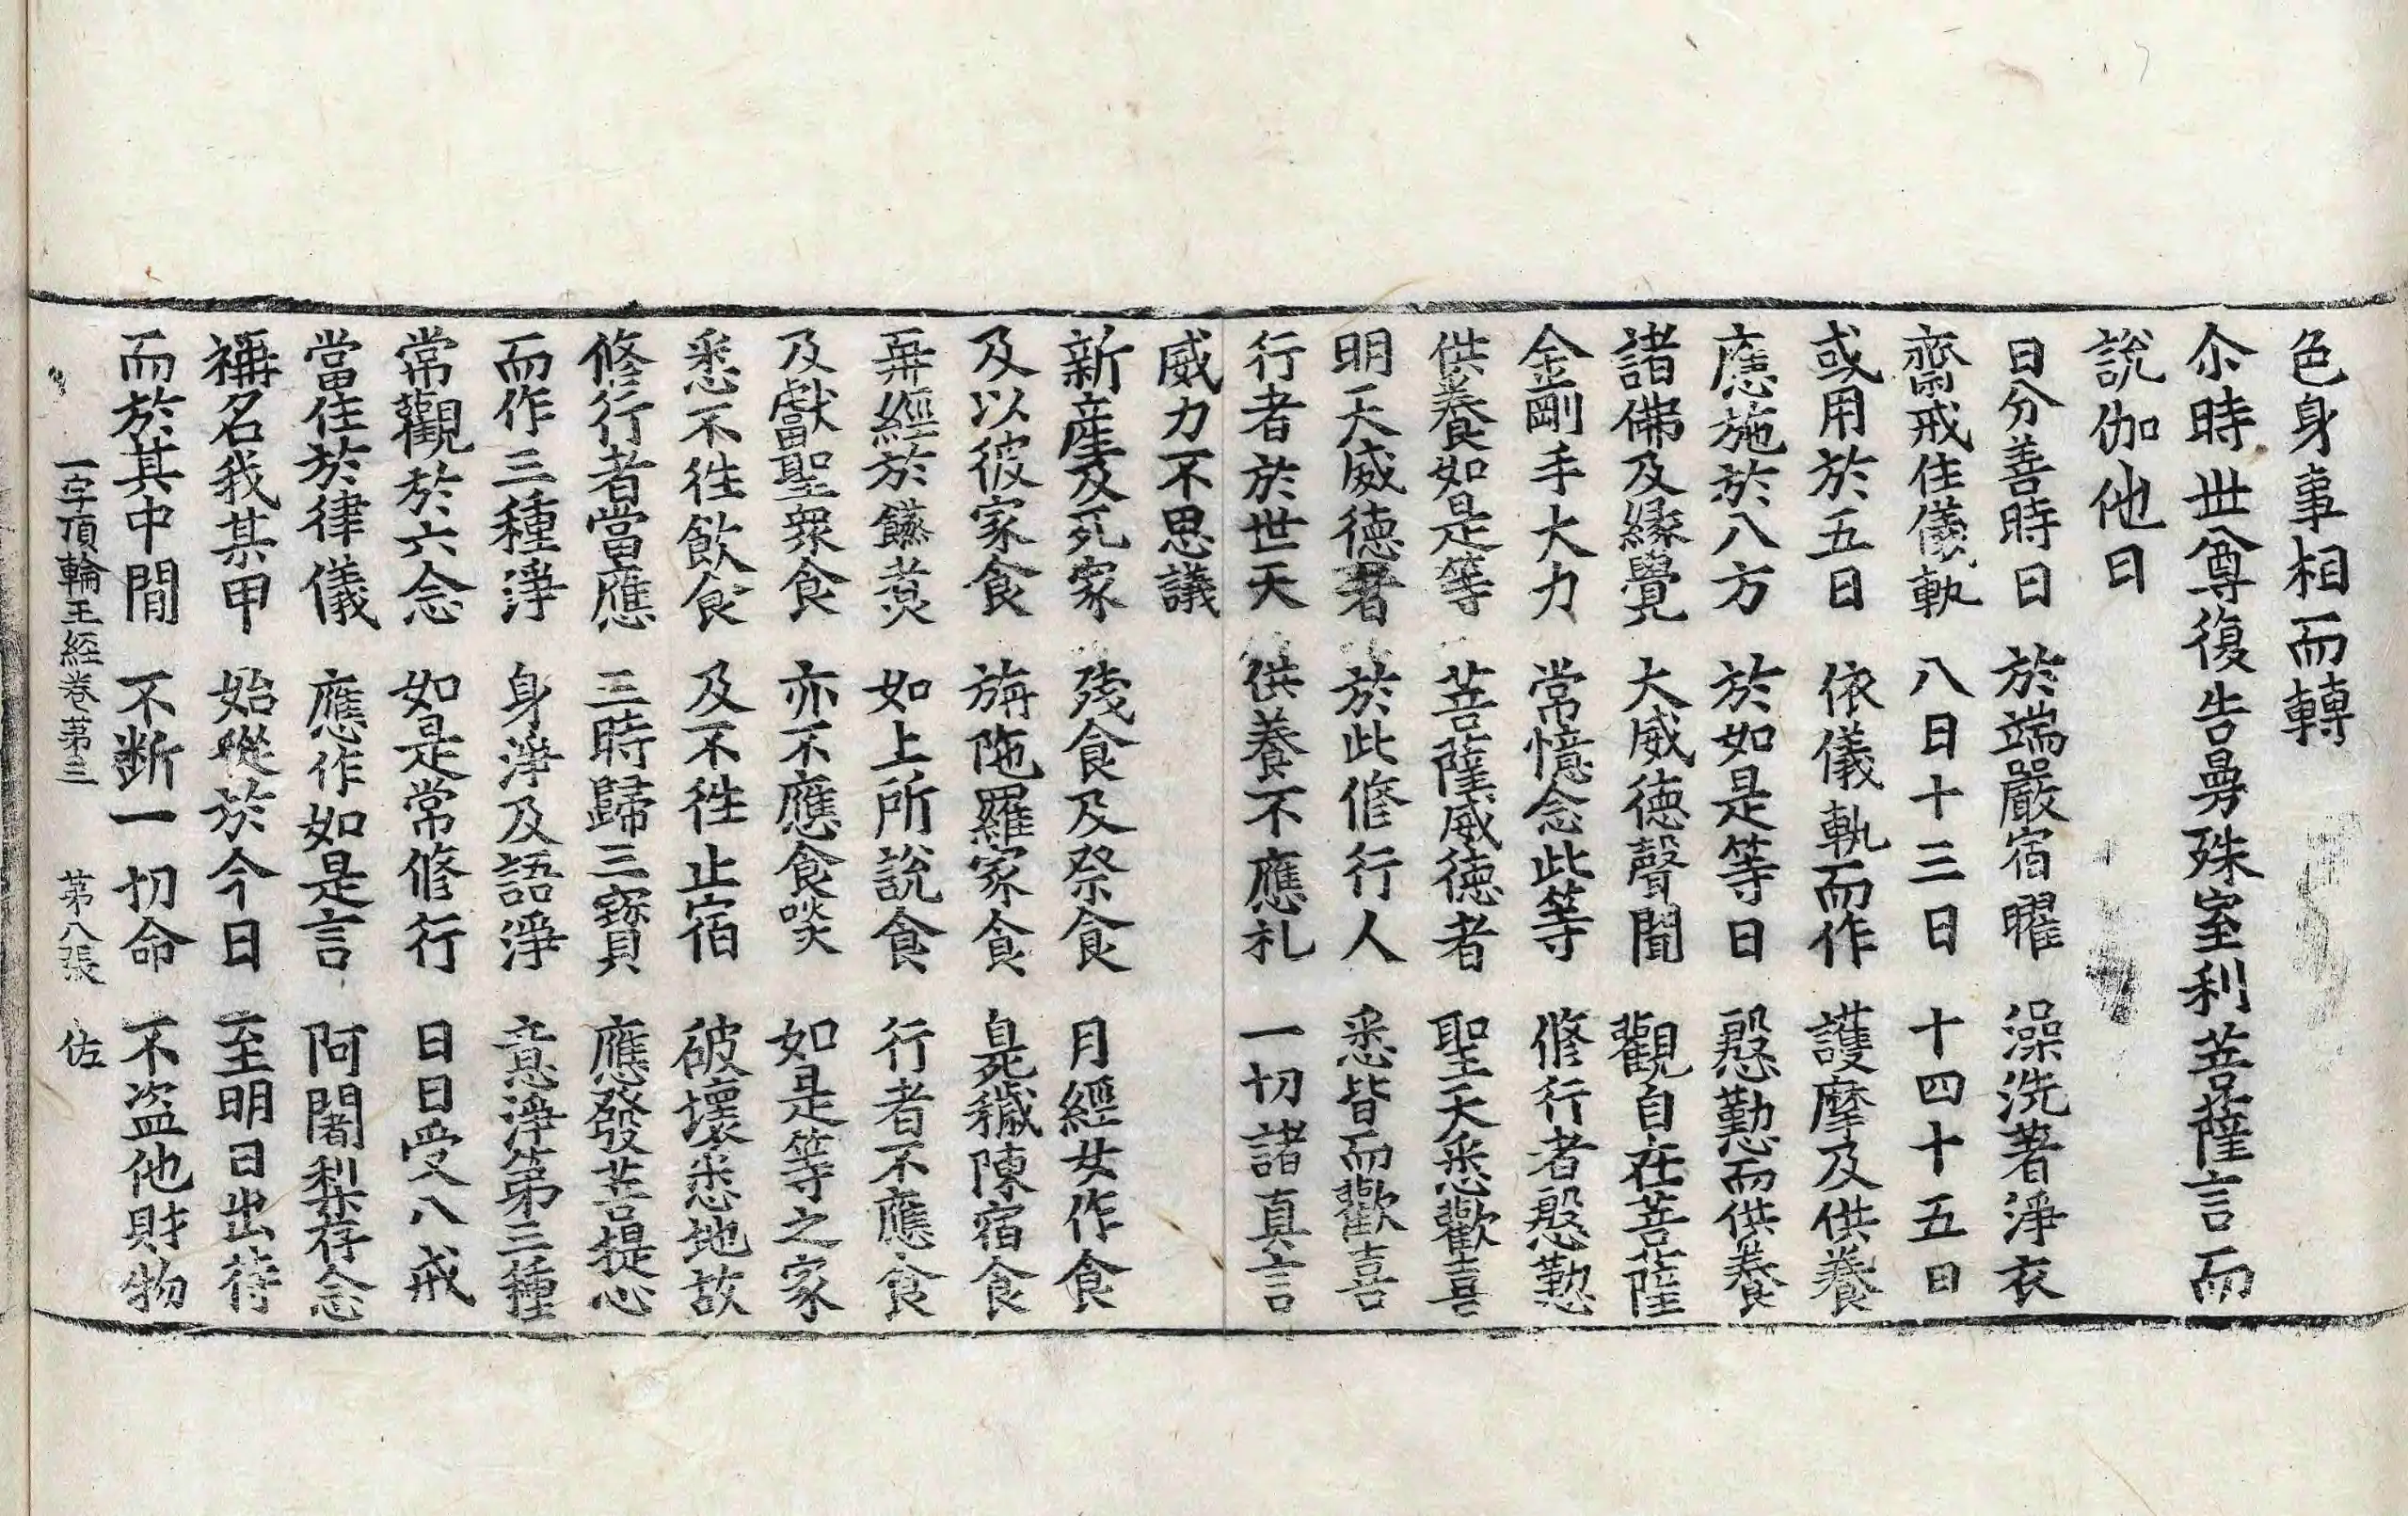 色身事相而轉
尒時世尊復告曼殊室利菩薩言而
說伽他曰
日分善時日　於端嚴宿曜　澡洗著淨衣
齋戒住儀軌　八日十三日　十四十五日
或用於五日　依儀軌而作　護摩及供養
應施於八方　於如是等日　慇懃而供養
諸佛及緣覺　大威德聲聞　觀自在菩薩
金剛手大力　常憶念此等　修行者慇懃
供養如是等　菩薩威德者　聖天悉歡喜
明天威德者　於此修行人　悉皆而歡喜
行者於世天　供養不應礼　一切諸真言
威力不思議
新產及死家　殘食及祭食　月經女作食
及以彼家食　旃陁羅家食　臭穢陳宿食
再經於䭜煑　如上所說食　行者不應食
及獻聖眾食　亦不應食啖　如是等之家
悉不往飲食　及不往止宿　破壞悉地故
修行者當應　三時歸三寶　應發菩提心
而作三種淨　身淨及語淨　意淨第三種
常觀於六念　如是常修行　日日受八戒
當住於律儀　應作如是言　阿闍梨存念
稱名我某甲　始從於今日　至明日出待
而於其中間　不断一切命　不盜他財物
一字頂輪王經卷第三　第八張　佐